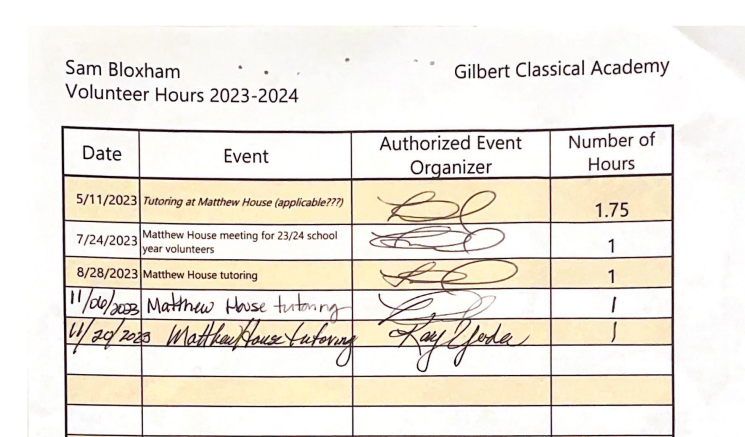 Sam Bloxham Gilbert Classical Academy
Volunteer Hours 2023-2024
Date Event Authorized Event Organizer Number of Hours
5/11/2023 Tutoring at Matthew House (applicable???) 1.75
7/24/2023 Matthew House meeting for 23/24 school
year volunteers 1
8/28/2023 Matthew House tutoring 1
11/06/2023 Matthew House tutoring 1
11/20/2023 Matthew House tutoring Kay Yoder 1